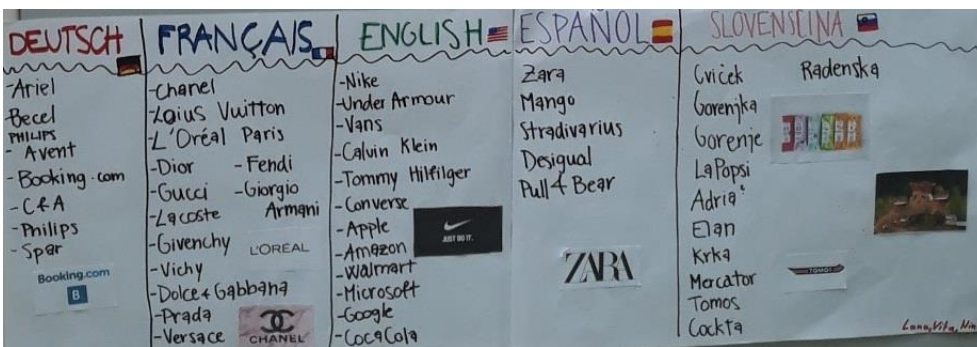 DEUTSCH
-Ariel
-Becel
PHILIPS
- Avent
-Booking.com
-C&A
-Philips
-Spar
Booking.com
B
FRANÇAIS
-Chanel
-Loius Vuitton
-L'Oréal Paris
-Dior -Fendi
-Gucci -Giorgio
-Lacoste Armani
-Givenchy
L'ORÉAL
-Vichy
-Dolce & Gabbana
-Prada
-Versace
CHANEL
ENGLISH
-Nike
-Under Armour
-Vans
-Calvin Klein
-Tommy Hilfilger
-Converse
-Apple
-Amazon
-Walmart
-Microsoft
-Google
-CocaCola
JUST DO IT.
ESPAÑOL
Zara
Mango
Stradivarius
Desigual
Pull & Bear
ZARA
SLOVENŠČINA
Cviček Radenska
Gorenjka
Gorenje
La Popsi
Adria
Elan
Krka
Mercator
Tomos
Cockta
TOMOS
Lana, Vita,